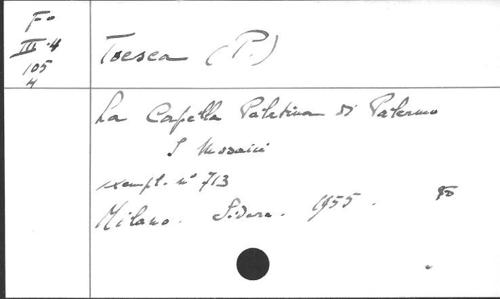 Fo
III.4
105
4
Toesca (P.)
La Capella Palatina di Palermo
I Mosaici
exempl. n° 713
Milano. Sidera. 1955.